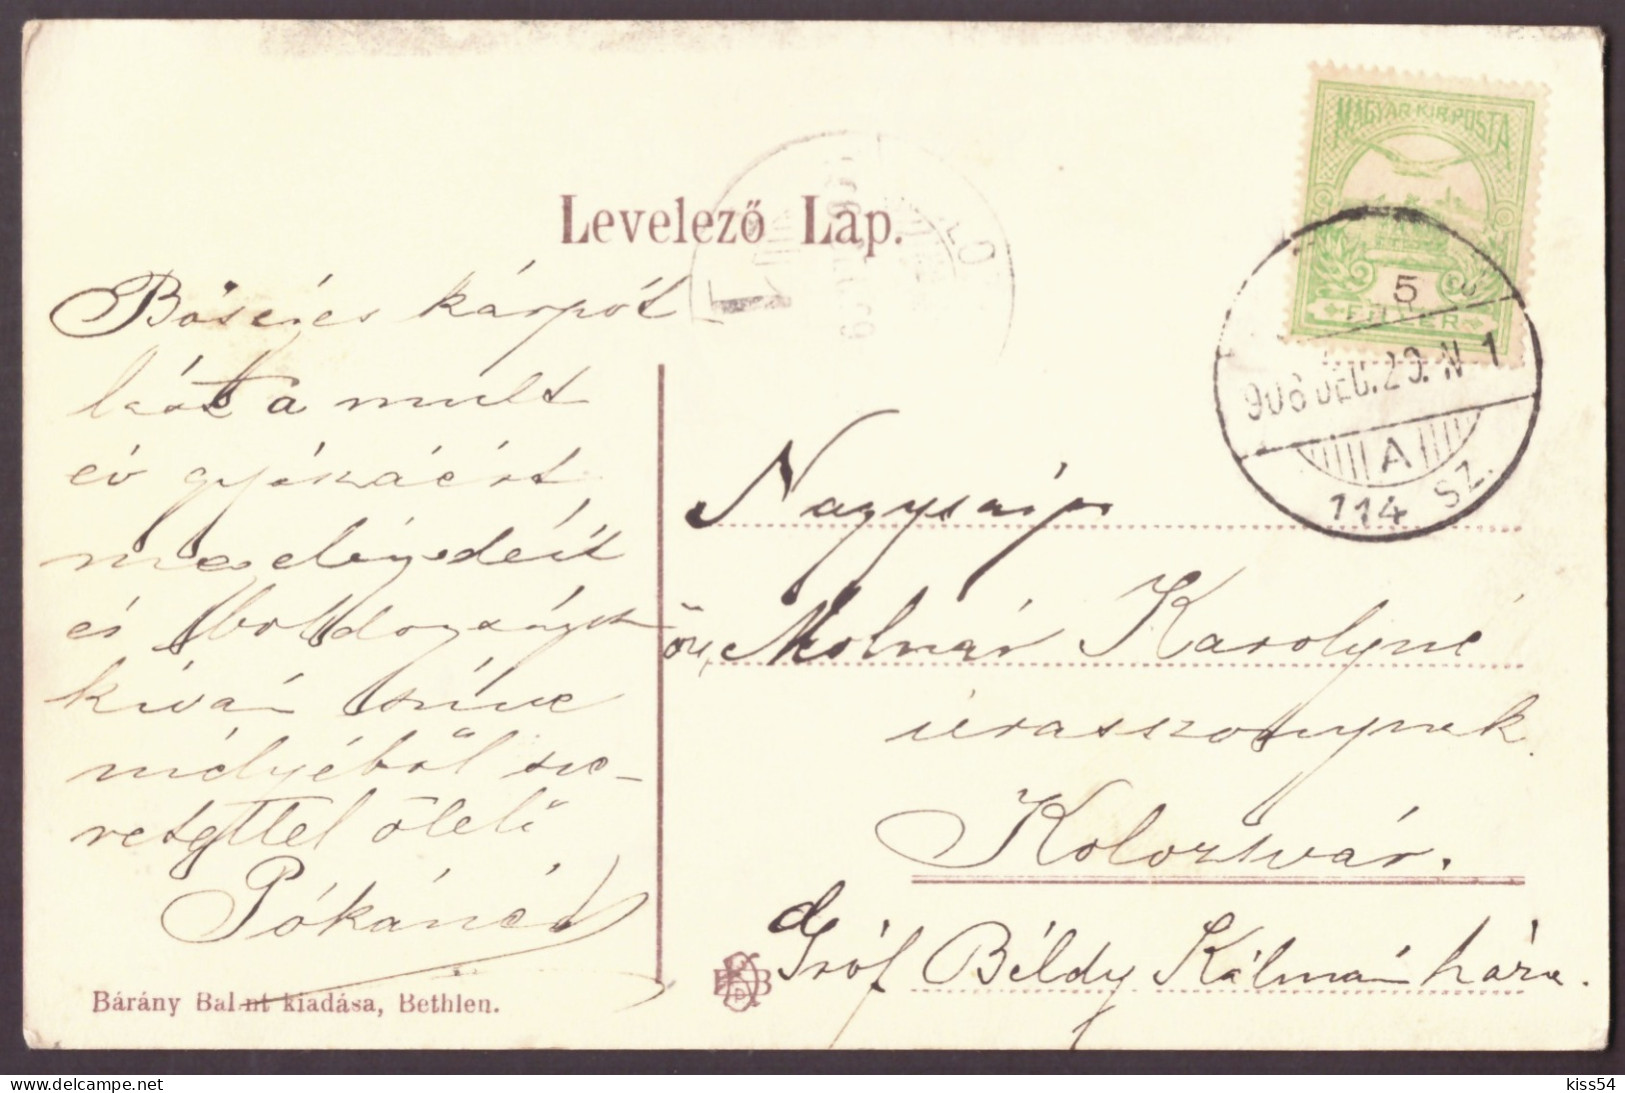 Levelező Lap.
MAGYAR KIR. POSTA
5
FILLÉR
906 DEC. 29. N 1
A
114 SZ.
Bőséges kárpót
lást a mult
év gyászáért
megelégedést
és boldogságot
kíván szíve
mélyéből sze-
retettel ölelő
Pókáné
Nagysás
özv. Molnár Karolyné
úrasszonynak
Kolozsvár.
Gróf Béldy Kálmán háza.
Bárány Balint kiadása, Bethlen.
kiss54